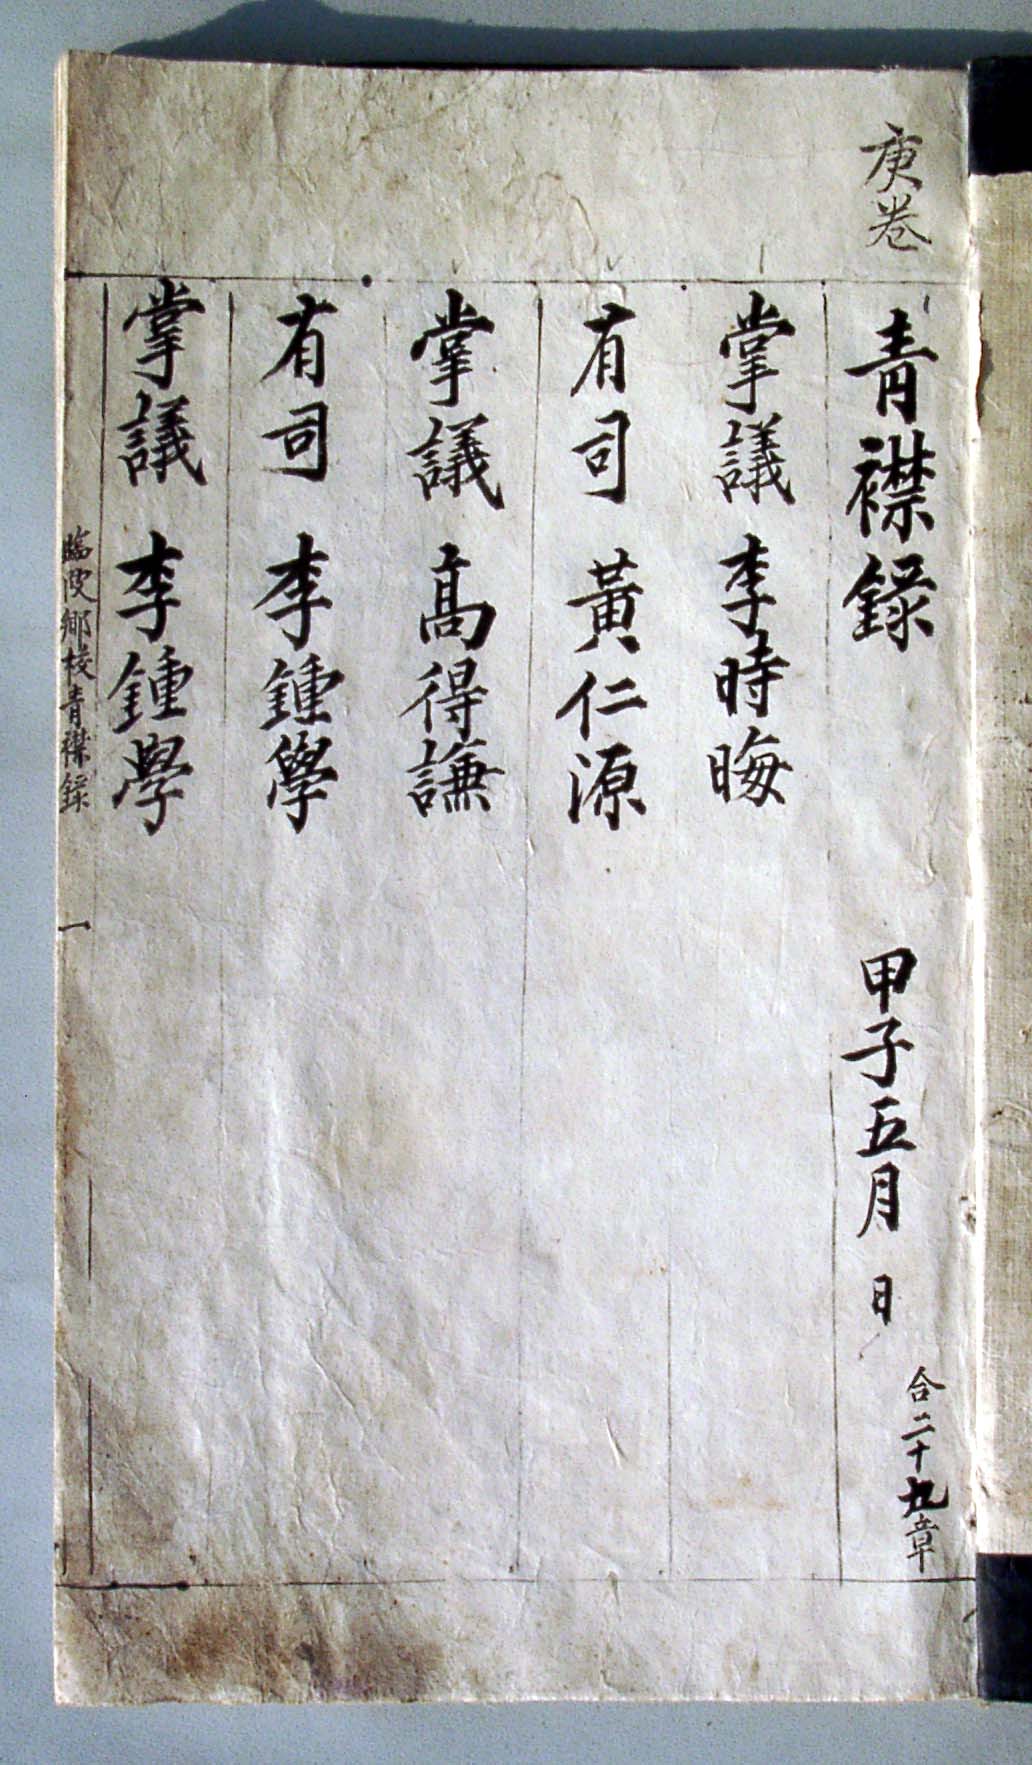 庚卷
青襟錄 甲子五月 日
合二十九章
掌議 李時晦
有司 黃仁源
掌議 高得謙
有司 李鍾學
掌議 李鍾學
臨陂鄉校青襟錄 一